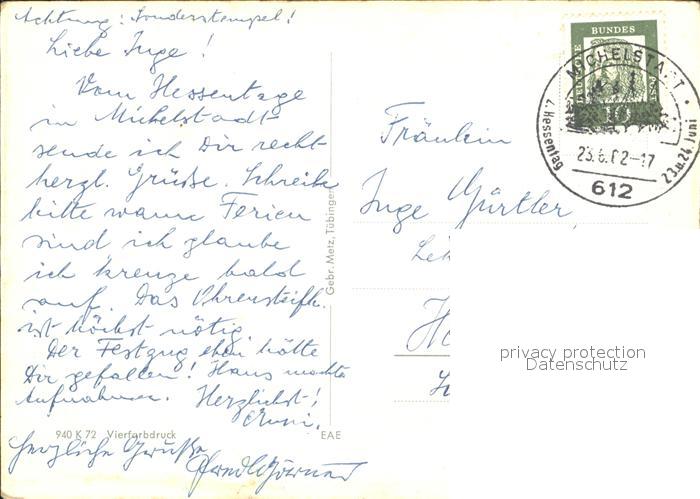 Achtung: Sonderstempel!
Liebe Inge!
Vom Hessentage
in Michelstadt
sende ich Dir recht
herzl. Grüße. Schreibe
bitte wann Ferien
sind ich glaube
ich kreuze bald
auf. Das Ohrensteifh.
ist höchst nötig
Der Festzug eben hätte
Dir gefallen! Hans machte
Aufnahmen. Herzlichst!
Herzliche Grüße
940 K 72 Vierfarbdruck
EAE
Gebr. Metz, Tübingen
DEUTSCHE BUNDESPOST
10
MICHELSTADT
2. Hessentag
23.u.24. Juni
23.6.62-17
612
Fräulein
Inge Gürtler
privacy protection
Datenschutz